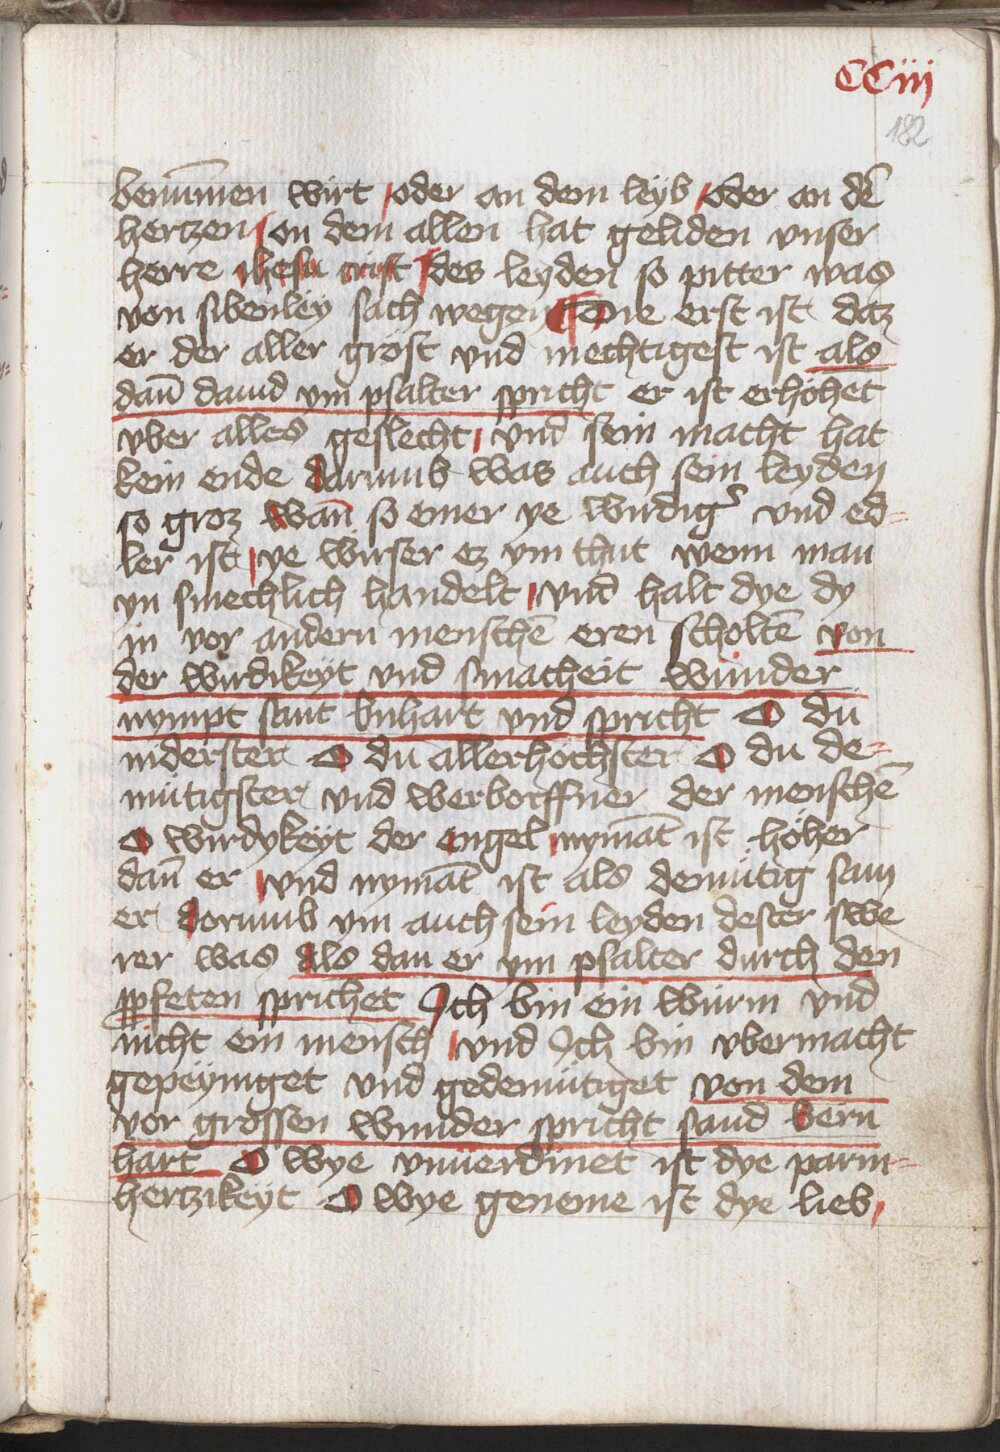 CCiij
182
benummen wirt oder an dem leyb oder an dē
hertzen on dem allen hat geliden vnser
herre ihesu crist des leyden so pitter was
von sibenley sach wegen Die erst ist datz
er der aller grost vnd mechtigest ist als
dan̄ dauid ym psalter spricht er ist erhöhet
vber alles geslecht vnd sein macht hat
kein ende darumb was auch sein leyden
so groz wan̄ so einer ye wirdigˀ vnd ed=
ler ist ye wirser ez ym thut wenn man
yn smechlich handelt vnd halt dye dy
in vor andern menschē eren scholtē von
der wirdikeyt vnd smacheit wunder
nympt sant bnhart vnd spricht O du
niderster O du allerhöchster O du de=
mütigster vnd werborffner der menschē
O wirdykeyt der engel nymāt ist höher
dan̄ er vnd nymāt ist als demütig sam
er dorumb ym auch sein leyden dester swe
rer was als dan er ym psalter durch den
ꝓpfeten sprichet Ich bin ein wurm vnd
nicht ein mensch vnd Ich bin vbermacht
gepeyniget vnd gedemütiget von dem
vor grossen wunder spricht sand bern
hart O wye vnuerdinet ist dye parm=
hertzikeyt O wye geneme ist dye lieb